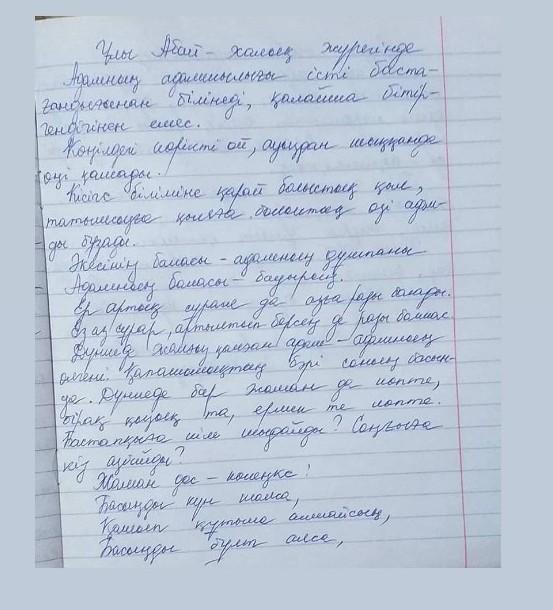 Ұлы Абай – халық жүрегінде
Адамның адамшылығы істі баста-
ғандығынан білінеді, қалайша бітір-
гендігінен емес.
Көңілдегі көрікті ой, ауыздан шыққанда
өңі қашады.
Кісіге біліміне қарай болыстық қыл,
татымсызға қылған болыстық өзі адам-
ды бұзады.
Әкесінің баласы – адамның дұшпаны
Адамның баласы – бауырың.
Ер артық сұраса да азға разы болады.
Ез аз сұрар, артылтып берсең де разы болмас.
Дүниеде жалғыз қалған адам – адамның
өлгені. Қапашылықтың бәрі соның басын-
да. Дүниеде бар жаман да көпте,
бірақ қызық та, ермек те көпте.
Бастапқыға кім шыдайды? Соңғыға
кім азбайды?
Жаман дос – көлеңке!
Басыңды күн шалса,
Қашып құтыла алмайсың,
Басыңды бұлт алса,